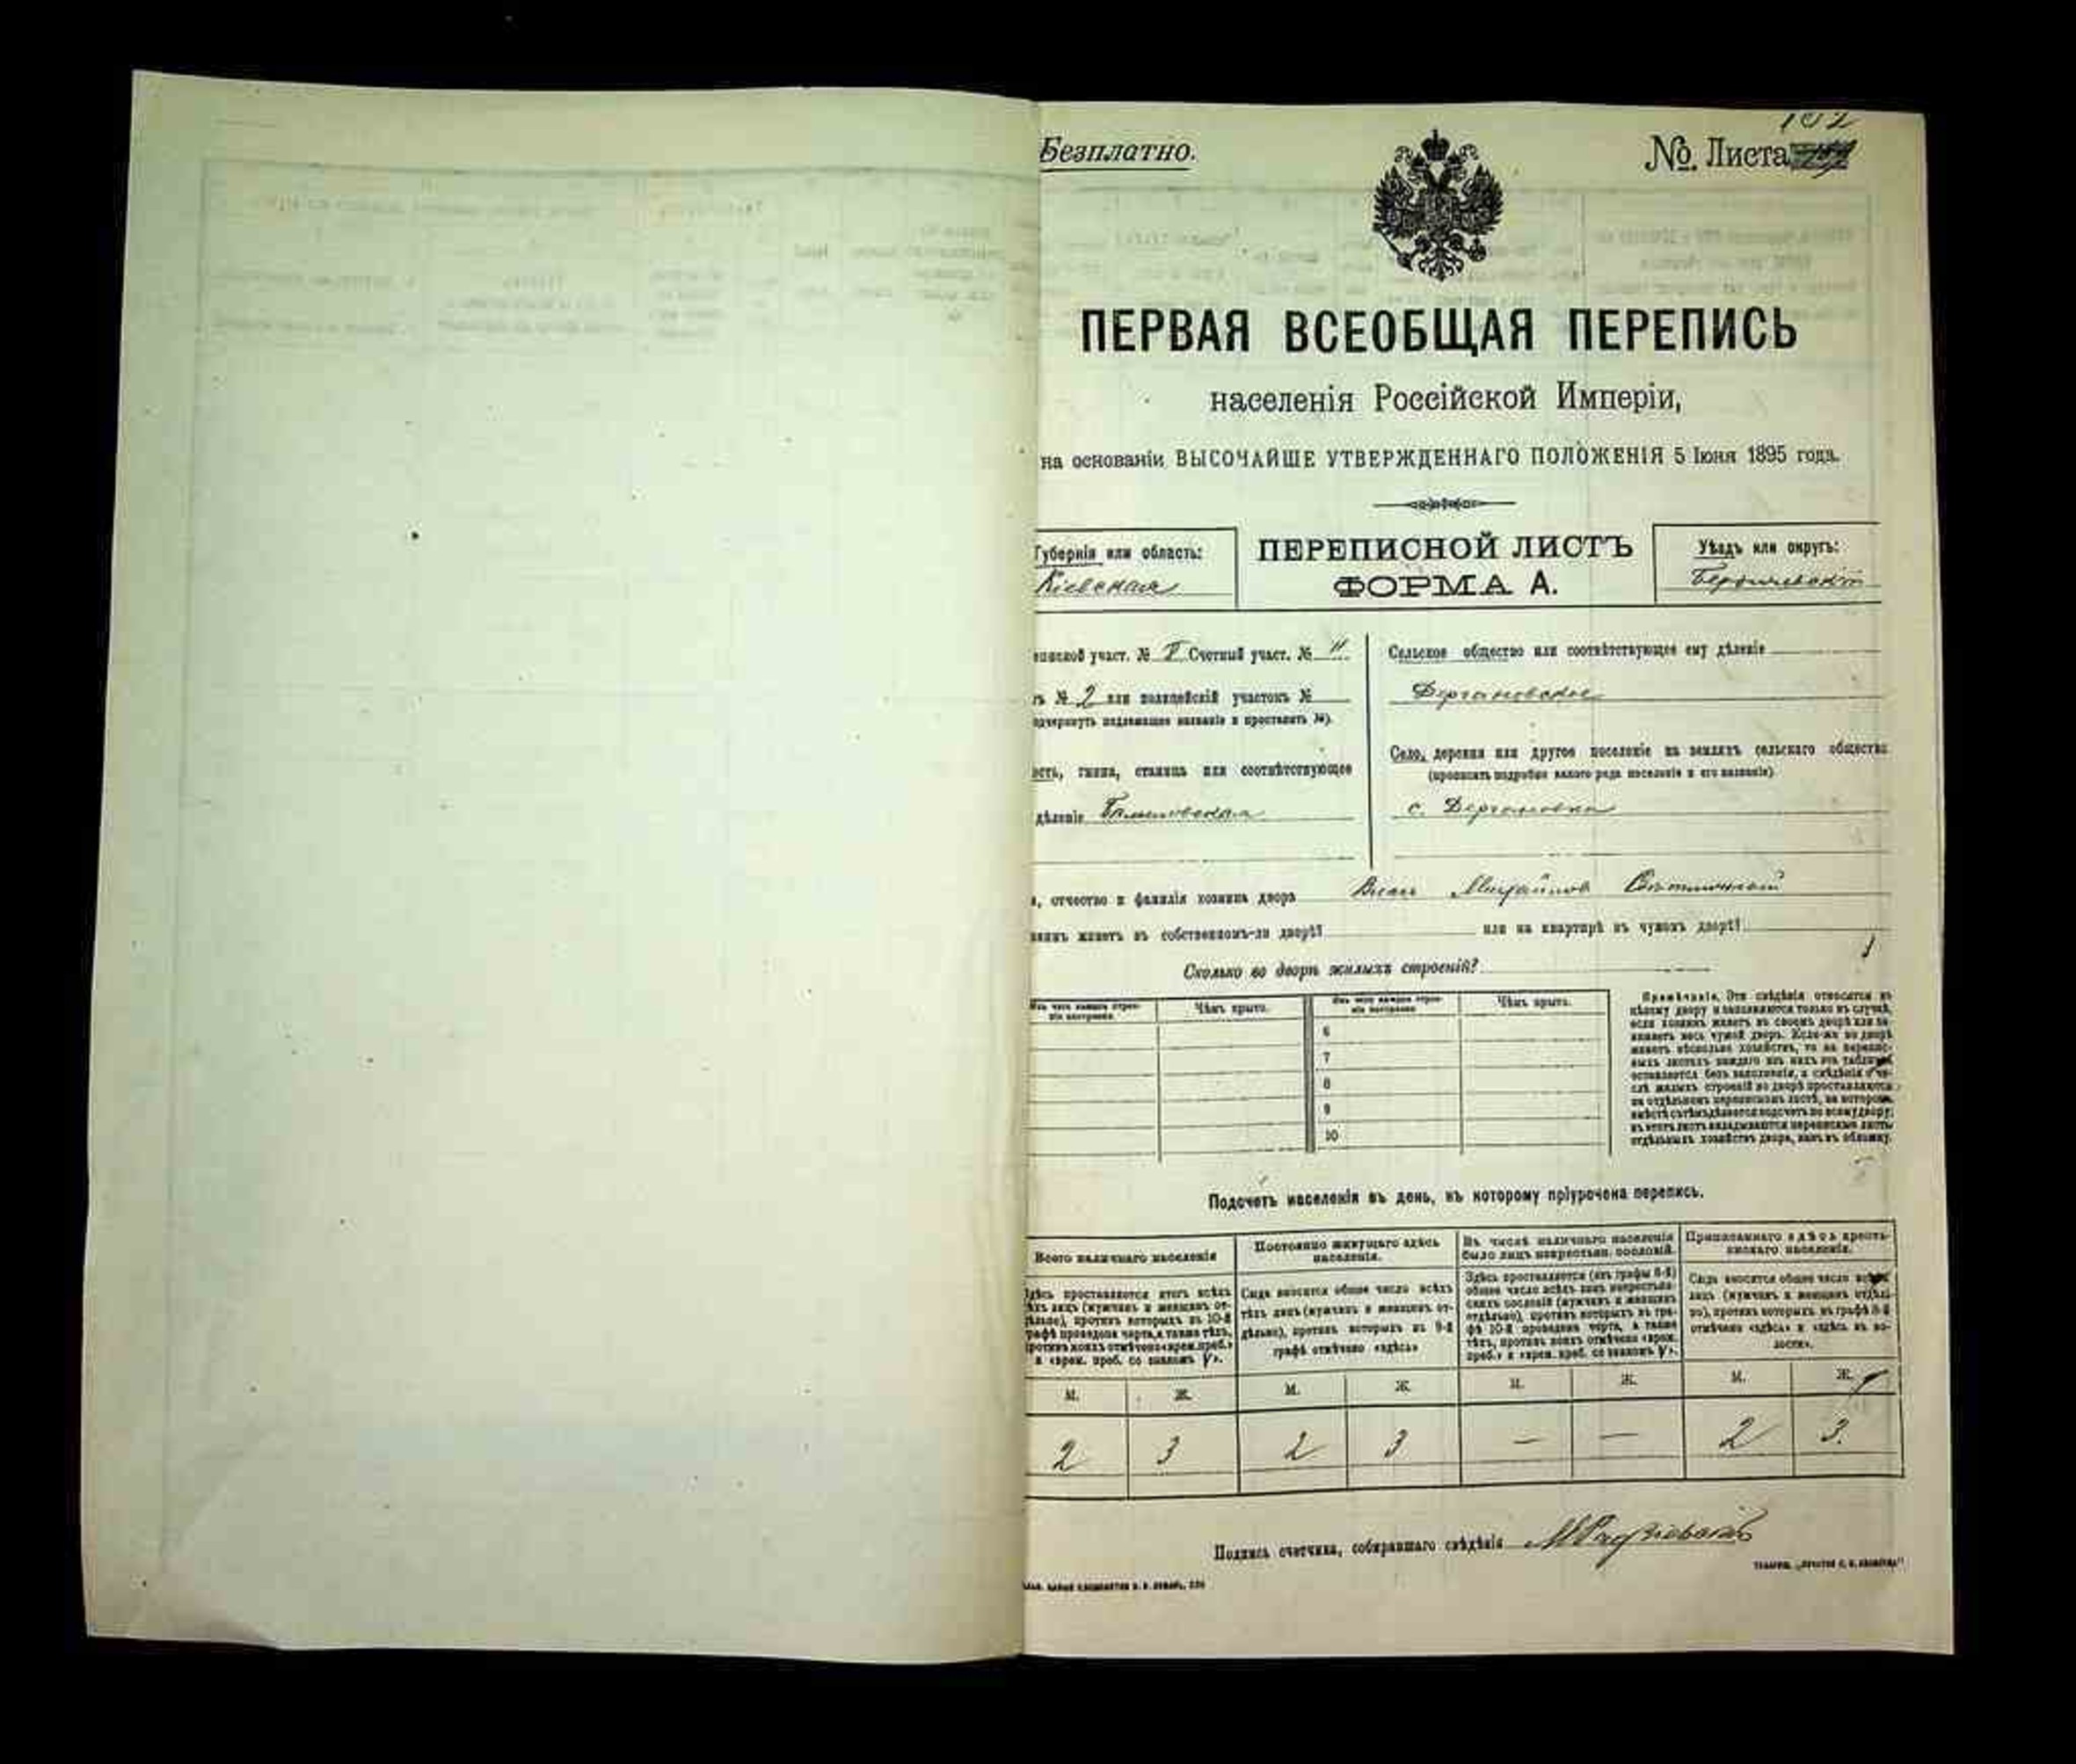 Безплатно.
№ Листа
ПЕРВАЯ ВСЕОБЩАЯ ПЕРЕПИСЬ
населенія Россійской Имперіи,
на основаніи ВЫСОЧАЙШЕ УТВЕРЖДЕННАГО ПОЛОЖЕНІЯ 5 Іюня 1895 года.
Губернія или область:
Кіевская
ПЕРЕПИСНОЙ ЛИСТЪ
ФОРМА А.
Уѣздъ или округъ:
Бердичевскій
участ. № Счетный участ. №
№ 2 или полицейскій участокъ №
подчеркнуть надлежащее названіе и проставить №).
гмина, станица или соотвѣтствующее
дѣленіе
Сельское общество или соотвѣтствующее ему дѣленіе
Дергановское
Село, деревня или другое поселеніе на земляхъ сельскаго общества
(прописать подробно какого рода поселеніе и его названіе)
с. Дергановка
отчество и фамилія хозяина двора Михайловъ
живетъ въ собственномъ-ли дворѣ? или на квартирѣ въ чужомъ дворѣ?
Сколько во дворѣ жилыхъ строеній?
Чѣмъ крыто.
Чѣмъ крыто.
6
7
8
9
10
Примѣчаніе. Эти свѣдѣнія относятся къ
цѣлому двору и заполняются только въ случаѣ,
если хозяинъ живетъ въ своемъ дворѣ или за-
нимаетъ весь чужой дворъ. Если-же во дворѣ
живетъ нѣсколько хозяйствъ, то на перепис-
ныхъ листахъ каждаго изъ нихъ эта таблица
оставляется безъ заполненія, а свѣдѣнія о чи-
слѣ жилыхъ строеній во дворѣ проставляются
на отдѣльномъ переписномъ листѣ, на которомъ
вмѣстѣ съ тѣмъ дѣлается подсчетъ по всему двору;
въ этотъ листъ вкладываются переписные листы
отдѣльныхъ хозяйствъ двора, какъ въ обложку.
Подсчетъ населенія въ день, къ которому пріурочена перепись.
Всего наличнаго населенія
Здѣсь проставляется итогъ всѣхъ
лицъ (мужчинъ и женщинъ от-
дѣльно), противъ которыхъ въ 10-й
графѣ проведена черта, а также тѣхъ,
противъ коихъ отмѣчено «врем. преб.»
и «врем. преб. со знакомъ V».
Постоянно живущаго здѣсь
населенія.
Сюда вносится общее число всѣхъ
тѣхъ лицъ (мужчинъ и женщинъ от-
дѣльно), противъ которыхъ въ 9-й
графѣ отмѣчено «здѣсь»
Въ числѣ наличнаго населенія
было лицъ некрестьян. сословій.
Здѣсь проставляется (изъ графы 6-й)
общее число всѣхъ лицъ некрестьян-
скихъ сословій (мужчинъ и женщинъ
отдѣльно), противъ которыхъ въ гра-
фѣ 10-й проведена черта, а также
тѣхъ, противъ коихъ отмѣчено «врем.
преб.» и «врем. преб. со знакомъ V».
Приписаннаго здѣсь кресть-
янскаго населенія.
Сюда вносится общее число всѣхъ
лицъ (мужчинъ и женщинъ отдѣль-
но), противъ которыхъ въ графѣ 8-й
отмѣчено «здѣсь» и «здѣсь въ во-
лости».
М. Ж. М. Ж. М. Ж. М. Ж.
2 3 2 3 — — 2 3.
Подпись счетчика, собиравшаго свѣдѣнія